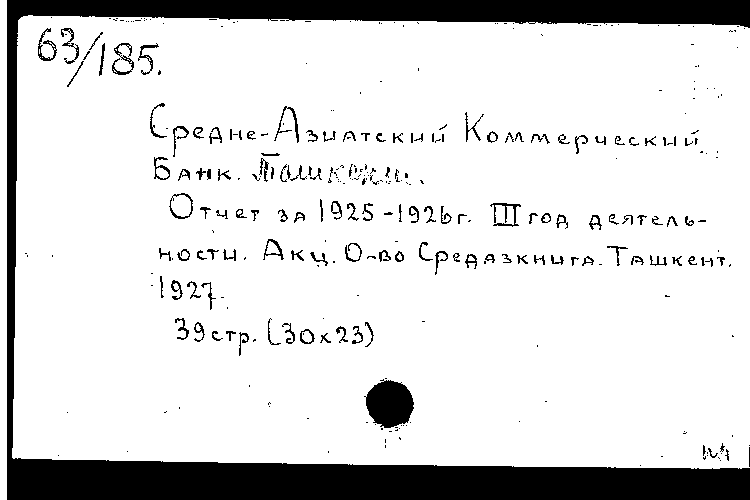 63/185.
Средне-Азиатский Коммерческий
Банк. Ташкент.
Отчет за 1925-1926г. III год деятель-
ности. Акц. О-во Средазкнига. Ташкент.
1927.
39стр. (30х23)